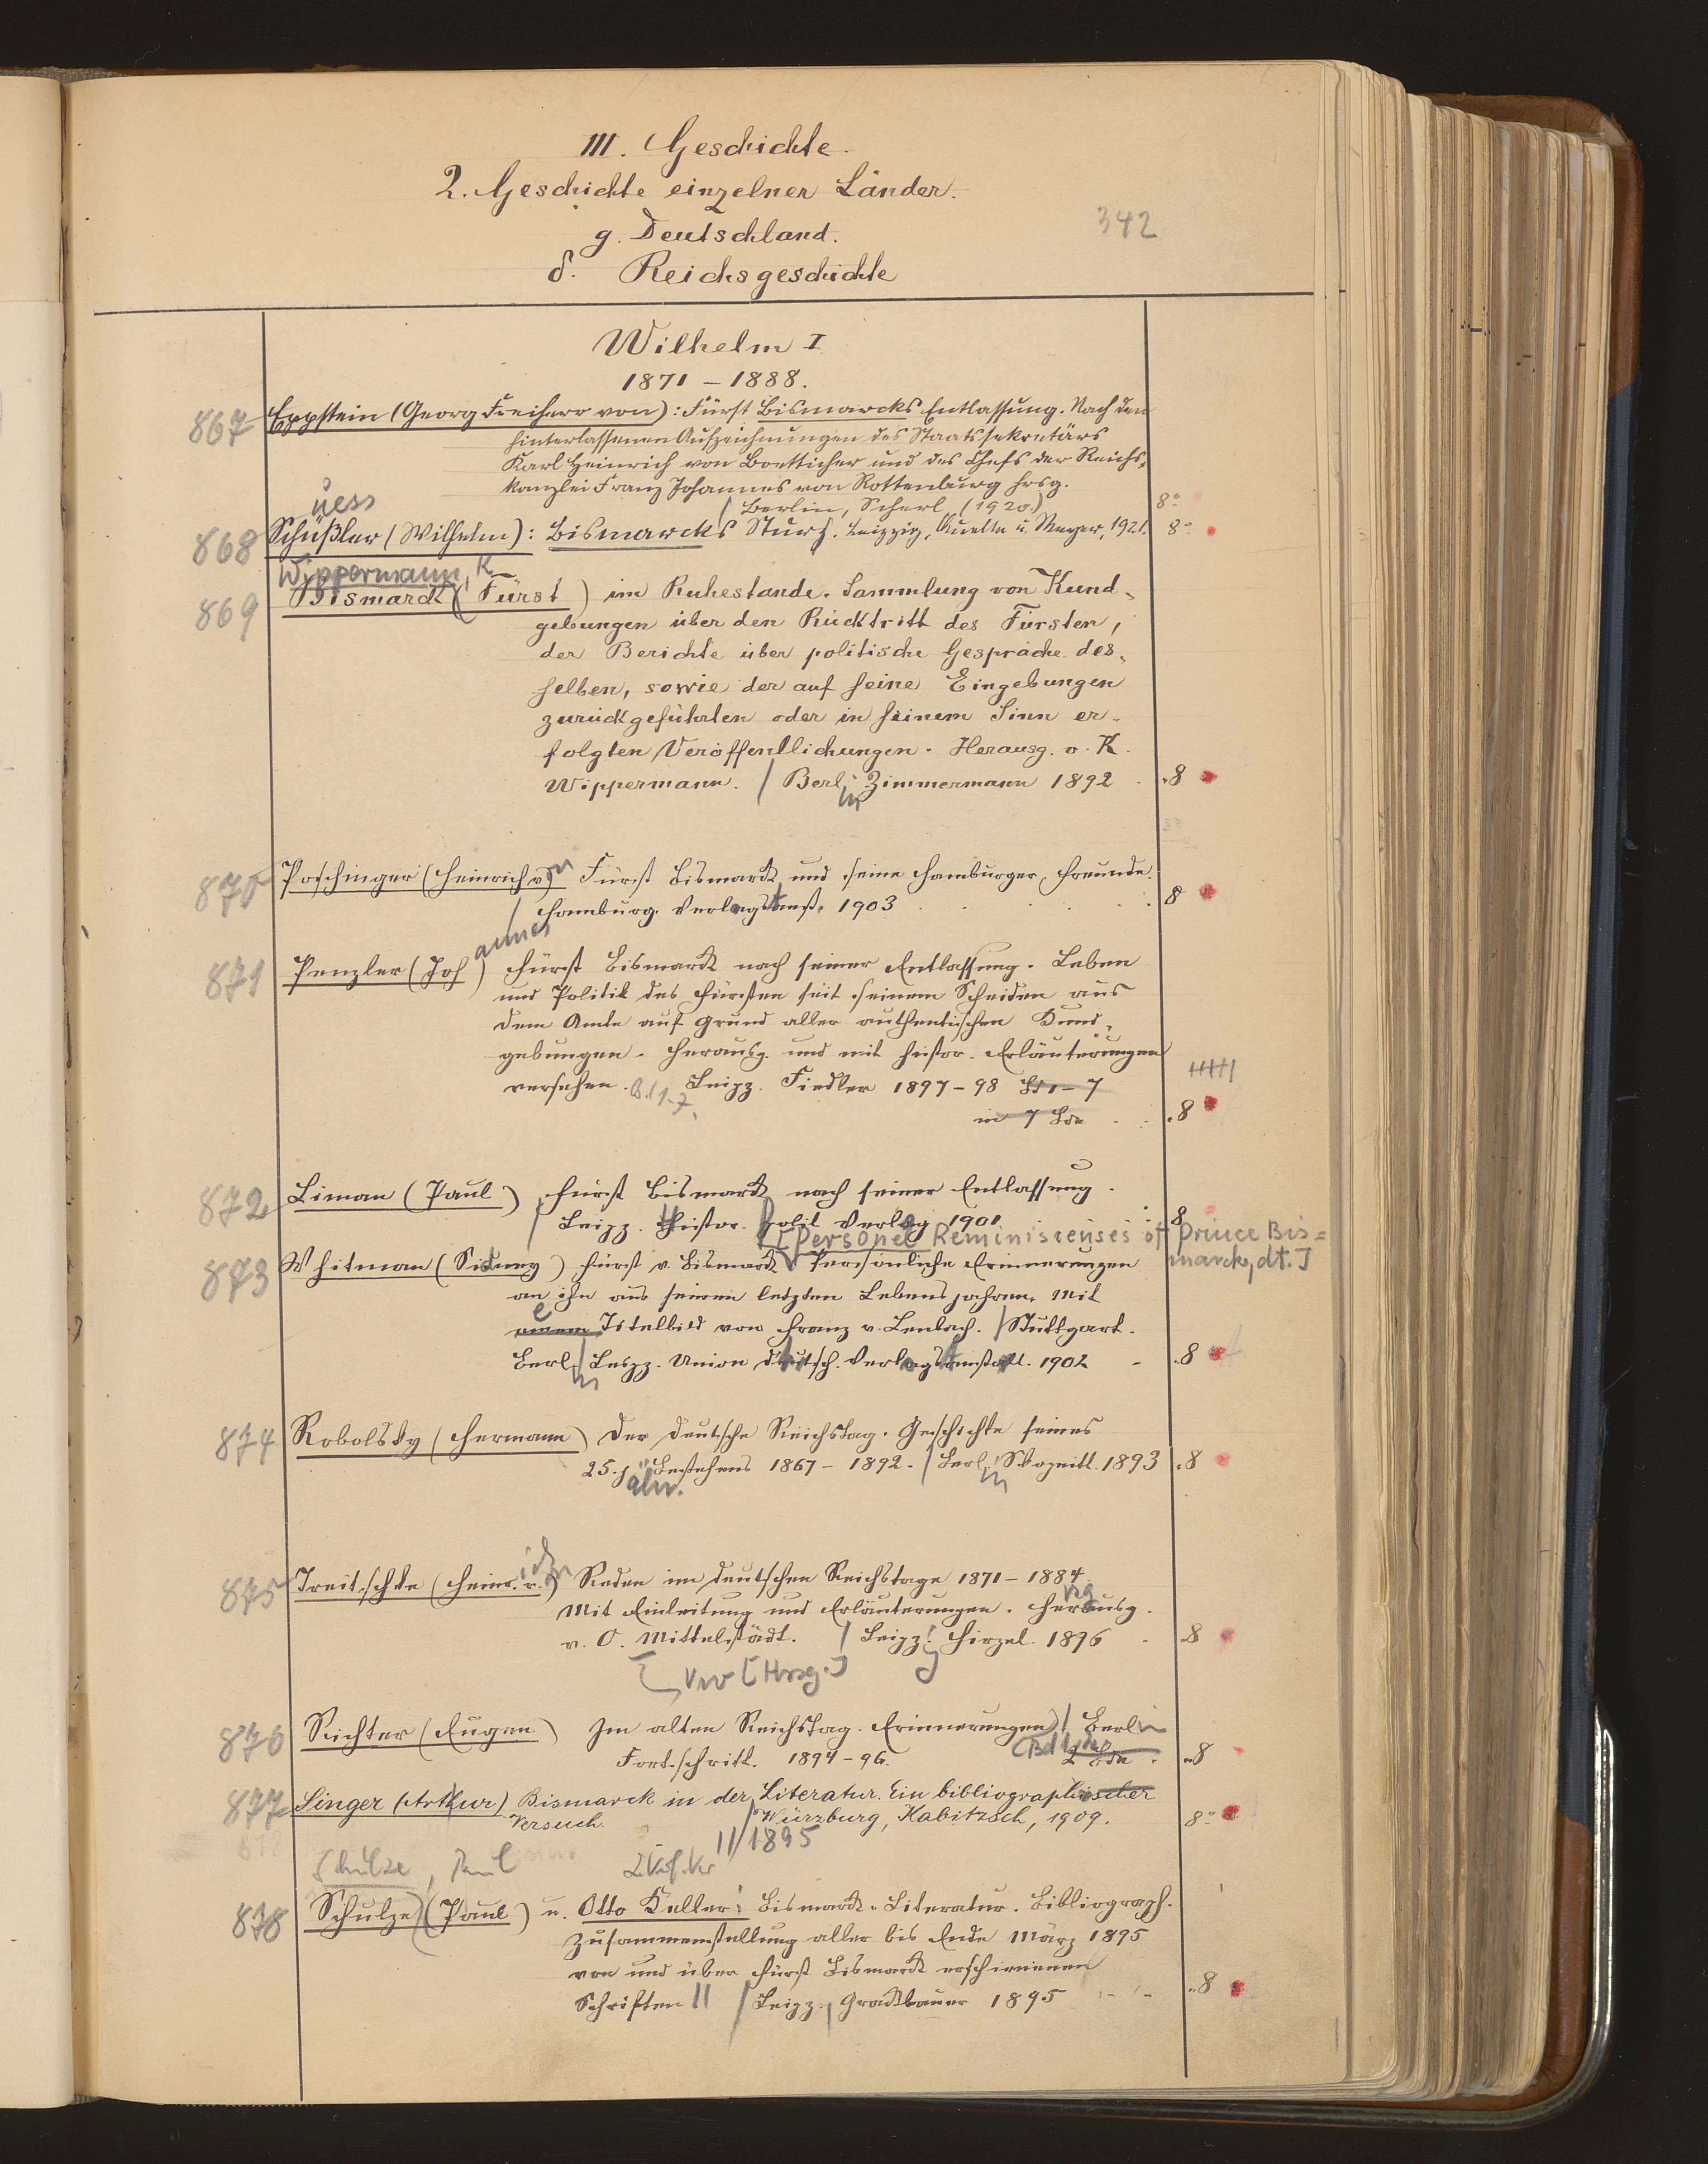 III. Geschichte.
2. Geschichte einzelner Länder.
342
g. Deutschland.
δ. Reichsgeschichte
Wilhelm I
1871 – 1888.
867 Eppstein (Georg Freiherr von): Fürst Bismarcks Entlassung. Nach den
hinterlassenen Aufzeichnungen des Staatssekretärs
Karl Heinrich von Boetticher und des Chefs der Reichs-
kanzlei Franz Johannes von Rottenburg hrsg.
/ Berlin, Scherl (1920.) 8°
üess
868 Schüßler (Wilhelm): Bismarcks Sturz. Leipzig, Quelle u. Meyer, 1921. 8°
Wippermann, K
869 Bismarck (Fürst) im Ruhestande. Sammlung von Kund-
gebungen über den Rücktritt des Fürsten,
der Berichte über politische Gespräche des-
selben, sowie der auf seine Eingebungen
zurückgeführten oder in seinem Sinn er-
folgten Veröffentlichungen. Herausg. v. K.
Wippermann. / Berlin Zimmermann 1892 8
870 Poschinger (Heinrich von) Fürst Bismarck und seine Hamburger Freunde.
/ Hamburg. Verlagsanst. 1903 8
annes
871 Penzler (Joh) Fürst Bismarck nach seiner Entlassung. Leben
und Politik des Fürsten seit seinem Scheiden aus
dem Amte auf Grund aller authentischen Kund-
gebungen. Herausg. und mit histor. Erläuterungen
versehen. Bd 1-7. Leipz. Fiedler 1897–98 Bd 1–7
in 7 Bde 8
872 Liman (Paul) Fürst Bismarck nach seiner Entlassung.
/ Leipz. Histor. polit Verlag 1901 8
[Personel Reminiscenses of Prince Bis=
marck, dt.]
873 Whitman (Sidney) Fürst v. Bismarck Persönliche Erinnerungen
an ihn aus seinen letzten Lebensjahren. Mit
e
einem Titelbild von Franz v. Lenbach. / Stuttgart.
Berlin Leipz. Union deutsch. Verlagsanstalt. 1902 8
874 Robolsky (Hermann) Der deutsche Reichstag. Geschichte seines
25. j. Bestehens 1867–1892. / Berlin Skopnik. 1893 8
ähr.
875 Treitschke (Heinr. v.) Reden im deutschen Reichstage 1871–1884.
Mit Einleitung und Erläuterungen. Herausg.
v. O. Mittelstädt. / Leipz. Hirzel. 1896 8
Vw [Hrsg.]
876 Richter (Eugen) Im alten Reichstag. Erinnerungen / Berlin
Fortschritt. 1894–96. 2 Bde. 8
877 Singer (Arthur) Bismarck in der Literatur. Ein bibliographischer
Versuch. / Würzburg, Kabitzsch, 1909. 8°
II/1895
Schulze, Paul
878 Schulze (Paul) u. Otto Keller: Bismarck-Literatur. Bibliograph.
Zusammenstellung aller bis Ende März 1895
von und über Fürst Bismarck erschienenen
Schriften II / Leipz. Gracklauer 1895 8